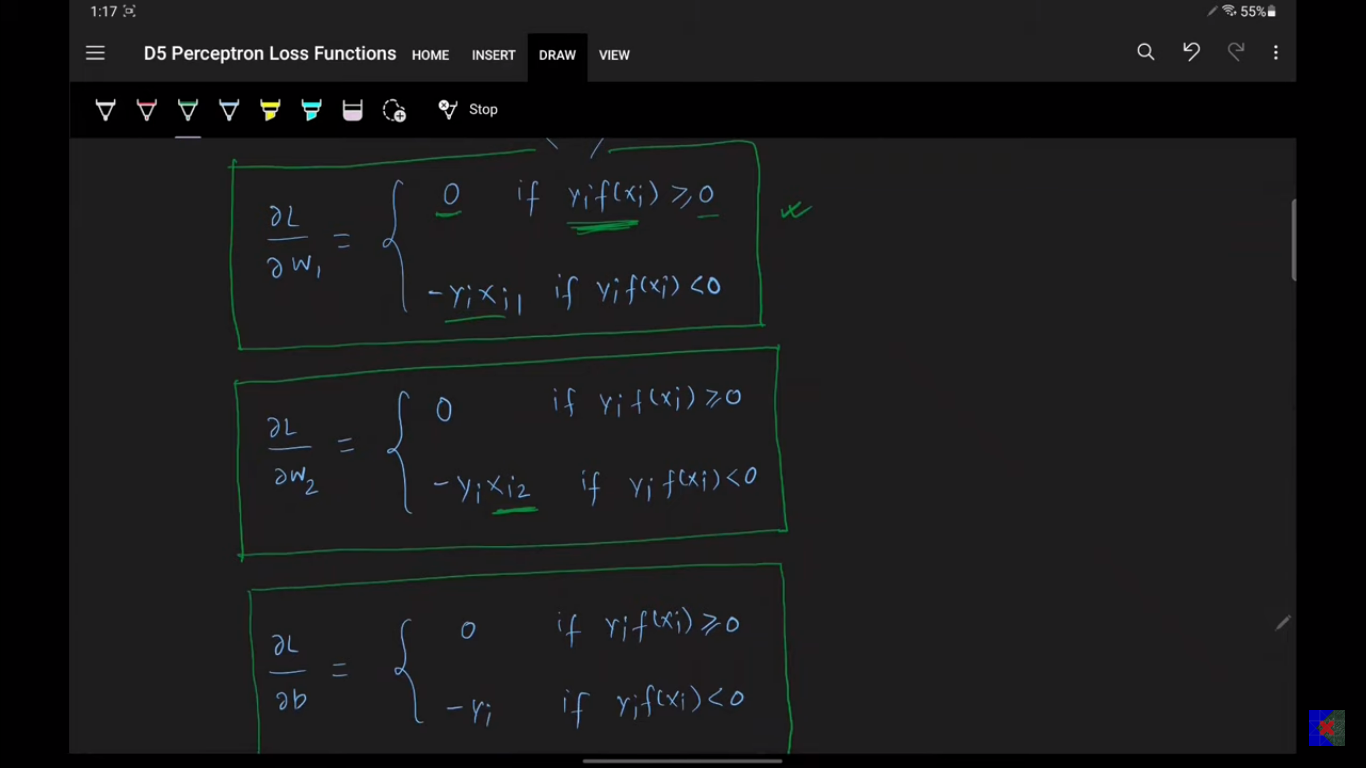 1:17 55%
D5 Perceptron Loss Functions HOME INSERT DRAW VIEW
Stop
∂L/∂w₁ = { 0 if yᵢf(xᵢ) ≥ 0
-yᵢxᵢ₁ if yᵢf(xᵢ) < 0
∂L/∂w₂ = { 0 if yᵢf(xᵢ) ≥ 0
-yᵢxᵢ₂ if yᵢf(xᵢ) < 0
∂L/∂b = { 0 if yᵢf(xᵢ) ≥ 0
-yᵢ if yᵢf(xᵢ) < 0